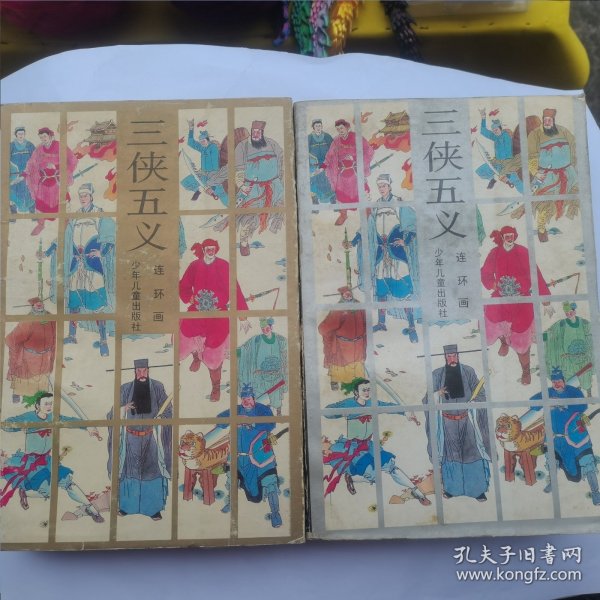 三侠五义
连环画
少年儿童出版社
三侠五义
连环画
少年儿童出版社
孔夫子旧书网
www.kongfz.com